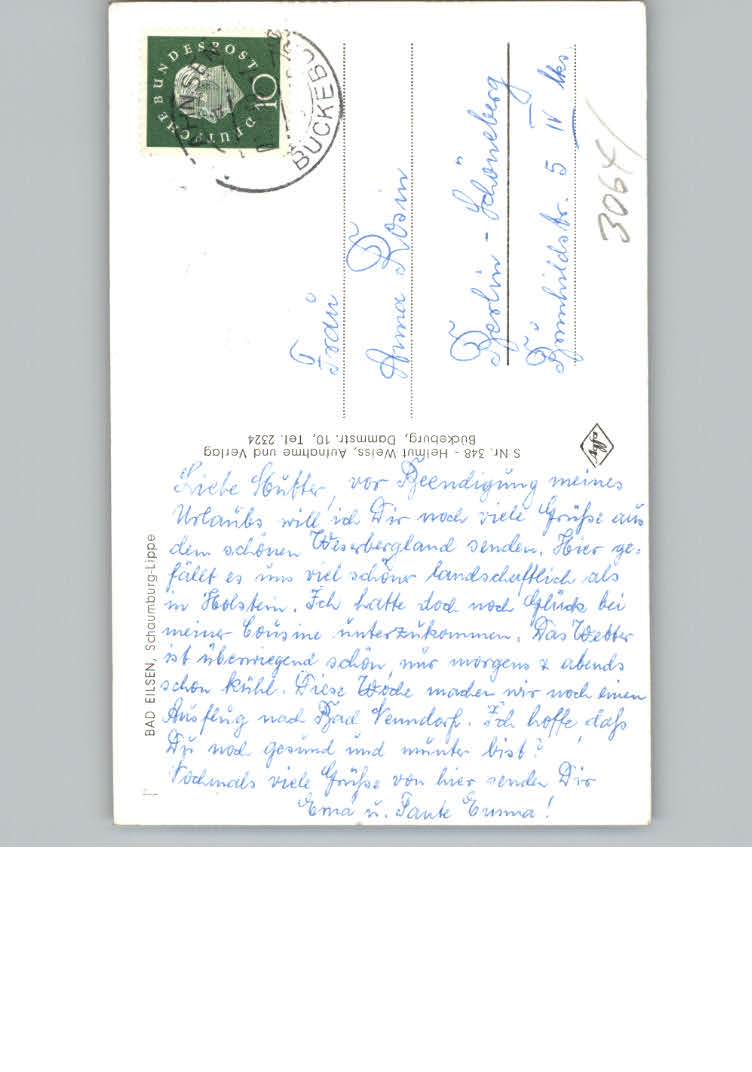 DEUTSCHE BUNDESPOST
10
BÜCKEBU
Frau
Anna Rosin
Berlin - Schöneberg
str. 5 IV lks
3064
S Nr. 348 - Helmut Weiss, Aufnahme und Verlag
Bückeburg, Dammstr. 10, Tel. 2324
BAD EILSEN, Schaumburg-Lippe
Liebe Mutter, vor Beendigung meines
Urlaubs will ich Dir noch viele Grüße aus
dem schönen Weserbergland senden. Hier ge=
fällt es uns viel schöner landschaftlich als
in Holstein. Ich hatte doch noch Glück bei
meiner Cousine unterzukommen. Das Wetter
ist überwiegend schön, nur morgens & abends
schon kühl. Diese Woche machen wir noch einen
Ausflug nach Bad Nenndorf. Ich hoffe, daß
Du noch gesund und munter bist?
Nochmals viele Grüße von hier senden Dir
Erna u. Tante Emma!